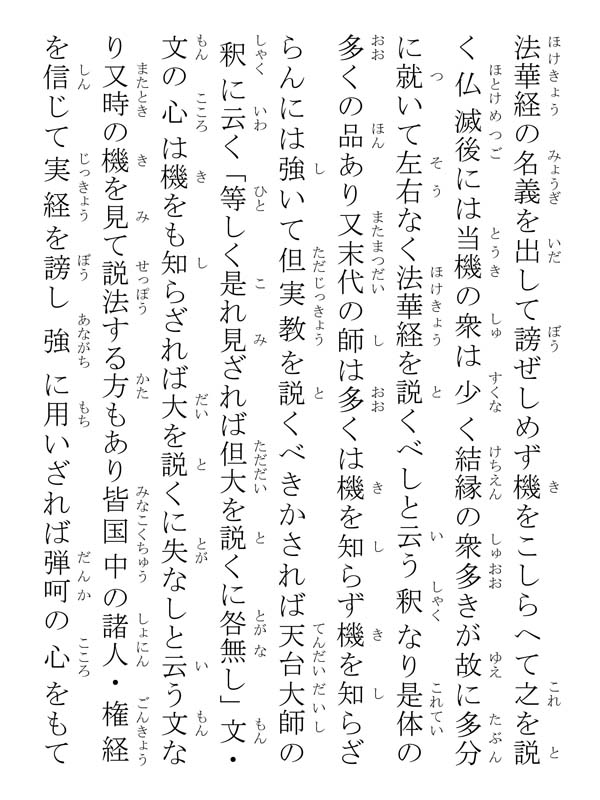 法華経の名義を出して謗ぜしめず機をこしらへて之を説
く仏滅後には当機の衆は少く結縁の衆多きが故に多分
に就いて左右なく法華経を説くべしと云う釈なり是体の
多くの品あり又末代の師は多くは機を知らず機を知らざ
らんには強いて但実教を説くべきかされば天台大師の
釈に云く「等しく是れ見ざれば但大を説くに咎無し」文・
文の心は機をも知らざれば大を説くに失なしと云う文な
り又時の機を見て説法する方もあり皆国中の諸人・権経
を信じて実経を謗し強に用いざれば弾呵の心をもて